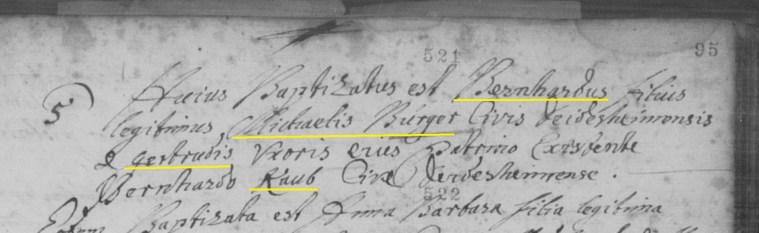 521
95
5 Huius Baptizatus est Bernhardus filius
legitimus Michaelis Bürger Civis Deidesheimensis
& Gertrudis Uxoris eius Patrino Existente
Bernhardo Raub Cive Deidesheimense.
522
Baptizata est Anna Barbara filia legitima